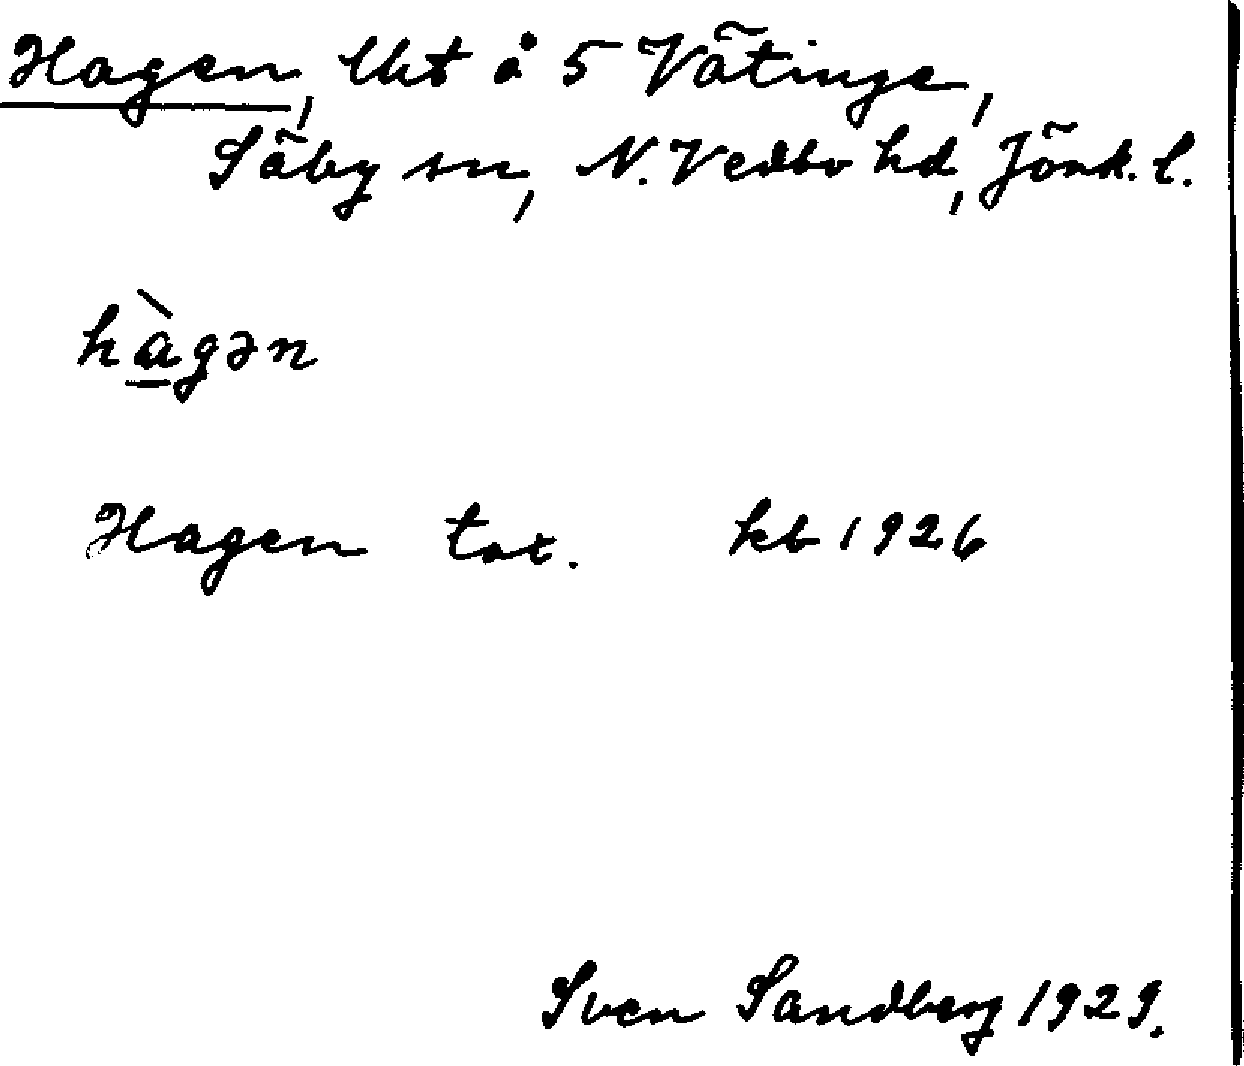 Hagen, lht å 5 Vätinge,
Säby sn, N. Vedbo hd, Jönk. l.
hàgən
Hagen tot. kb 1926
Sven Sandberg 1929.